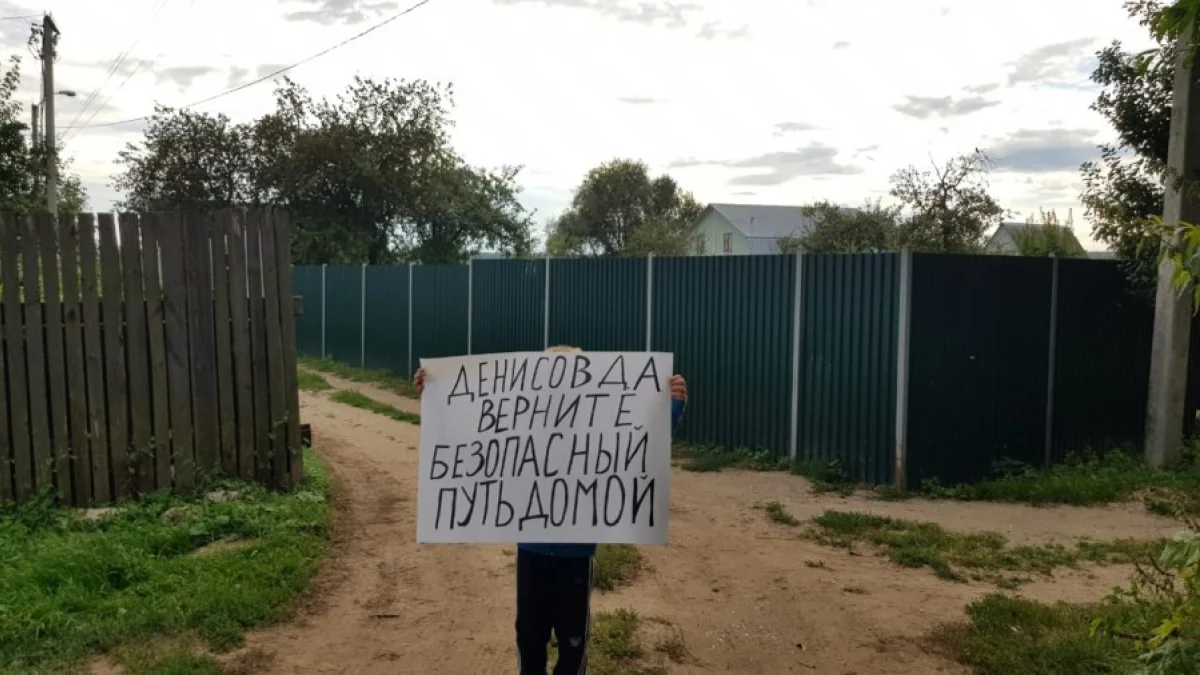 ДЕНИСОВ Д.А.
ВЕРНИТЕ
БЕЗОПАСНЫЙ
ПУТЬ ДОМОЙ